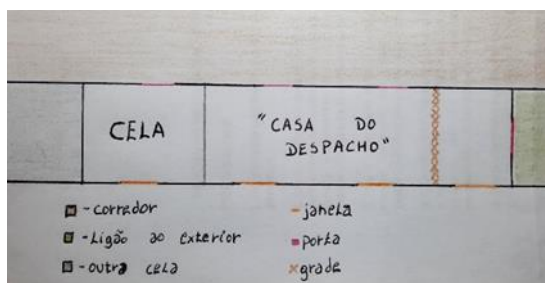 CELA
"CASA DO
DESPACHO"
- corredor
- Ligão ao exterior
- outra cela
- janela
- porta
grade